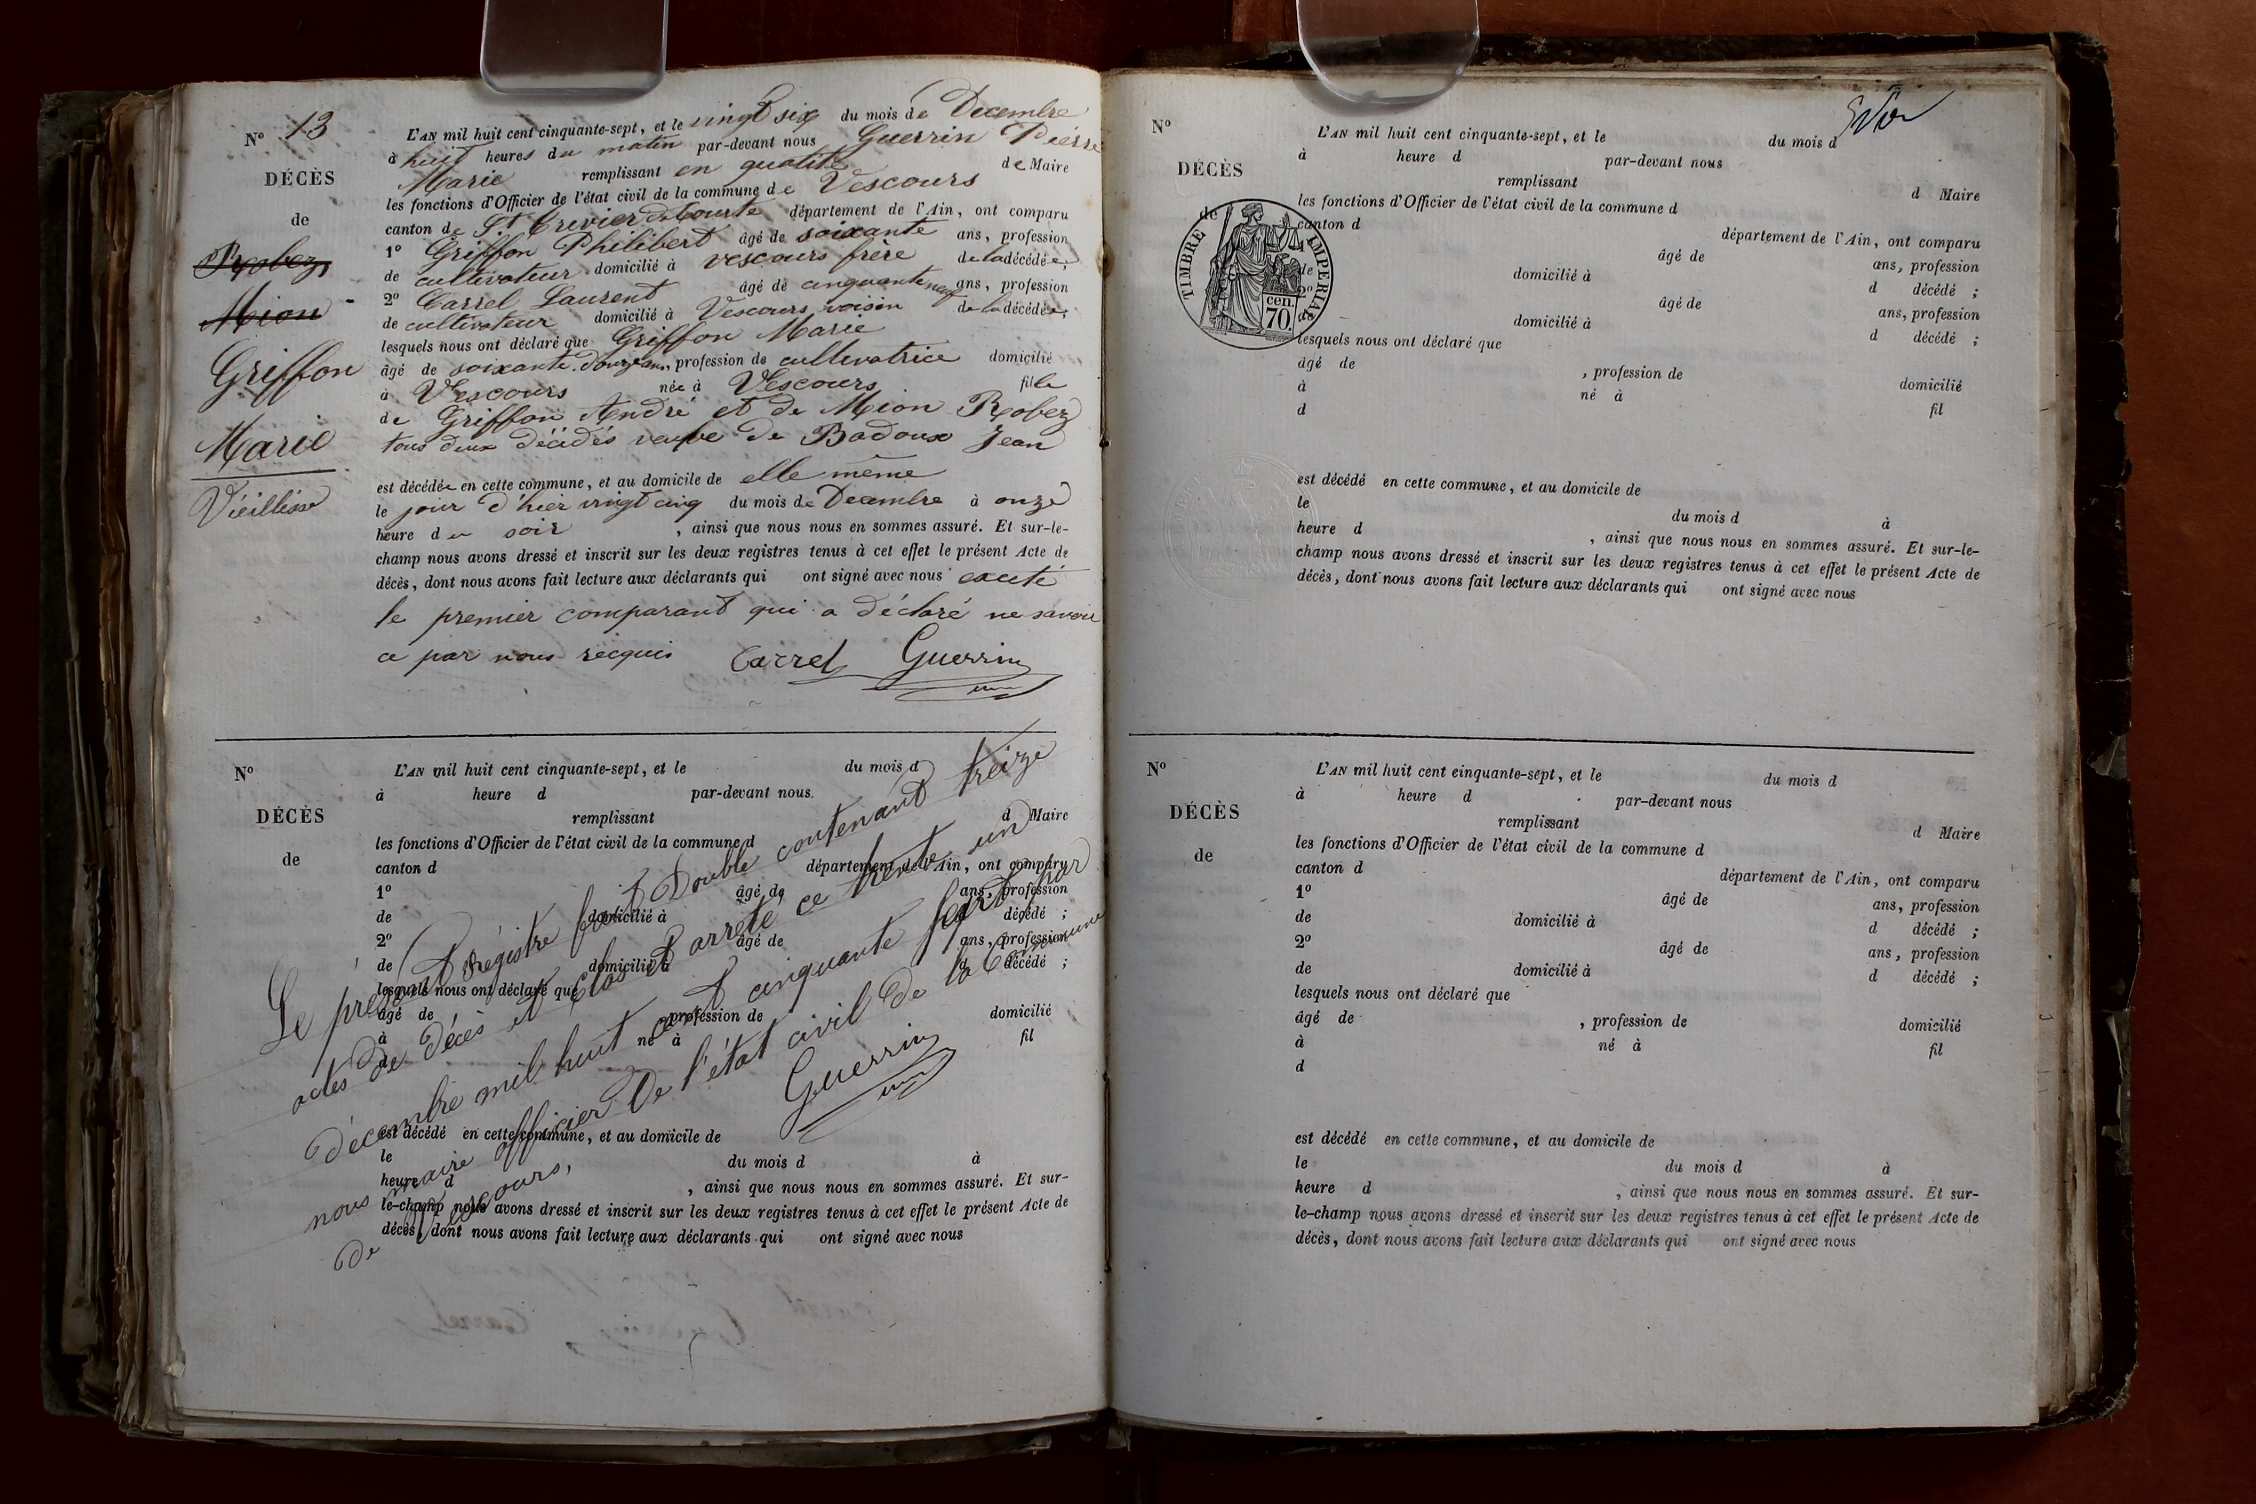 N° 13
DÉCÈS
de
Robez
Mion
Griffon
Marie
Vieillesse
L'AN mil huit cent cinquante-sept, et le vingt six du mois de Decembre
à huit heures du matin par-devant nous Guerrin Pierre
Marie remplissant en qualité de Maire
les fonctions d'Officier de l'état civil de la commune de Vescours
canton de St Trevier de Courte département de l'Ain, ont comparu
1° Griffon Philibert âgé de soixante ans, profession
de cultivateur domicilié à vescours frère de la décédée;
2° Carrel Laurent âgé de cinquante neuf ans, profession
de cultivateur domicilié à Vescours voisin de la décédée;
lesquels nous ont déclaré que Griffon Marie
âgé de soixante douze ans, profession de cultivatrice domicilié
à Vescours née à Vescours fille
de Griffon André et de Mion Robez
tous deux décédés veuve de Badoux Jean
est décédée en cette commune, et au domicile de elle même
le jour d'hier vingt cinq du mois de Decembre à onze
heure du soir, ainsi que nous nous en sommes assuré. Et sur-le-
champ nous avons dressé et inscrit sur les deux registres tenus à cet effet le présent Acte de
décès, dont nous avons fait lecture aux déclarants qui ont signé avec nous excité
le premier comparant qui a déclaré ne savoir
ce par nous recquis Carrel Guerrin
N°
DÉCÈS
de
L'AN mil huit cent cinquante-sept, et le du mois d
à heure d par-devant nous.
remplissant d Maire
les fonctions d'Officier de l'état civil de la commune d
canton d département de l'Ain, ont comparu
1° âgé de ans, profession
de domicilié à d décédé ;
2° âgé de ans, profession
de domicilié à d décédé ;
lesquels nous ont déclaré que
âgé de profession de domicilié
à né à fil
d
est décédé en cette commune, et au domicile de
le du mois d à
heure d , ainsi que nous nous en sommes assuré. Et sur-
le-champ nous avons dressé et inscrit sur les deux registres tenus à cet effet le présent Acte de
décès, dont nous avons fait lecture aux déclarants qui ont signé avec nous
Le present régistre fait Double contenant treize
actes de décès et clos et arrêté ce trente un
décembre mil huit cent cinquante sept par
nous maire officier de l'état civil de la Commune
de Vescours,
Guerrin
N°
DÉCÈS
de
TIMBRE IMPERIAL
70 cen.
L'AN mil huit cent cinquante-sept, et le du mois d
à heure d par-devant nous
remplissant d Maire
les fonctions d'Officier de l'état civil de la commune d
canton d département de l'Ain, ont comparu
âgé de ans, profession
de domicilié à d décédé ;
2° âgé de ans, profession
de domicilié à d décédé ;
lesquels nous ont déclaré que
âgé de , profession de domicilié
à né à fil
d
est décédé en cette commune, et au domicile de
le du mois d à
heure d , ainsi que nous nous en sommes assuré. Et sur-le-
champ nous avons dressé et inscrit sur les deux registres tenus à cet effet le présent Acte de
décès, dont nous avons fait lecture aux déclarants qui ont signé avec nous
N°
DÉCÈS
de
L'AN mil huit cent cinquante-sept, et le du mois d
à heure d par-devant nous
remplissant d Maire
les fonctions d'Officier de l'état civil de la commune d
canton d département de l'Ain, ont comparu
1° âgé de ans, profession
de domicilié à d décédé ;
2° âgé de ans, profession
de domicilié à d décédé ;
lesquels nous ont déclaré que
âgé de , profession de domicilié
à né à fil
d
est décédé en cette commune, et au domicile de
le du mois d à
heure d , ainsi que nous nous en sommes assuré. Et sur-
le-champ nous avons dressé et inscrit sur les deux registres tenus à cet effet le présent Acte de
décès, dont nous avons fait lecture aux déclarants qui ont signé avec nous